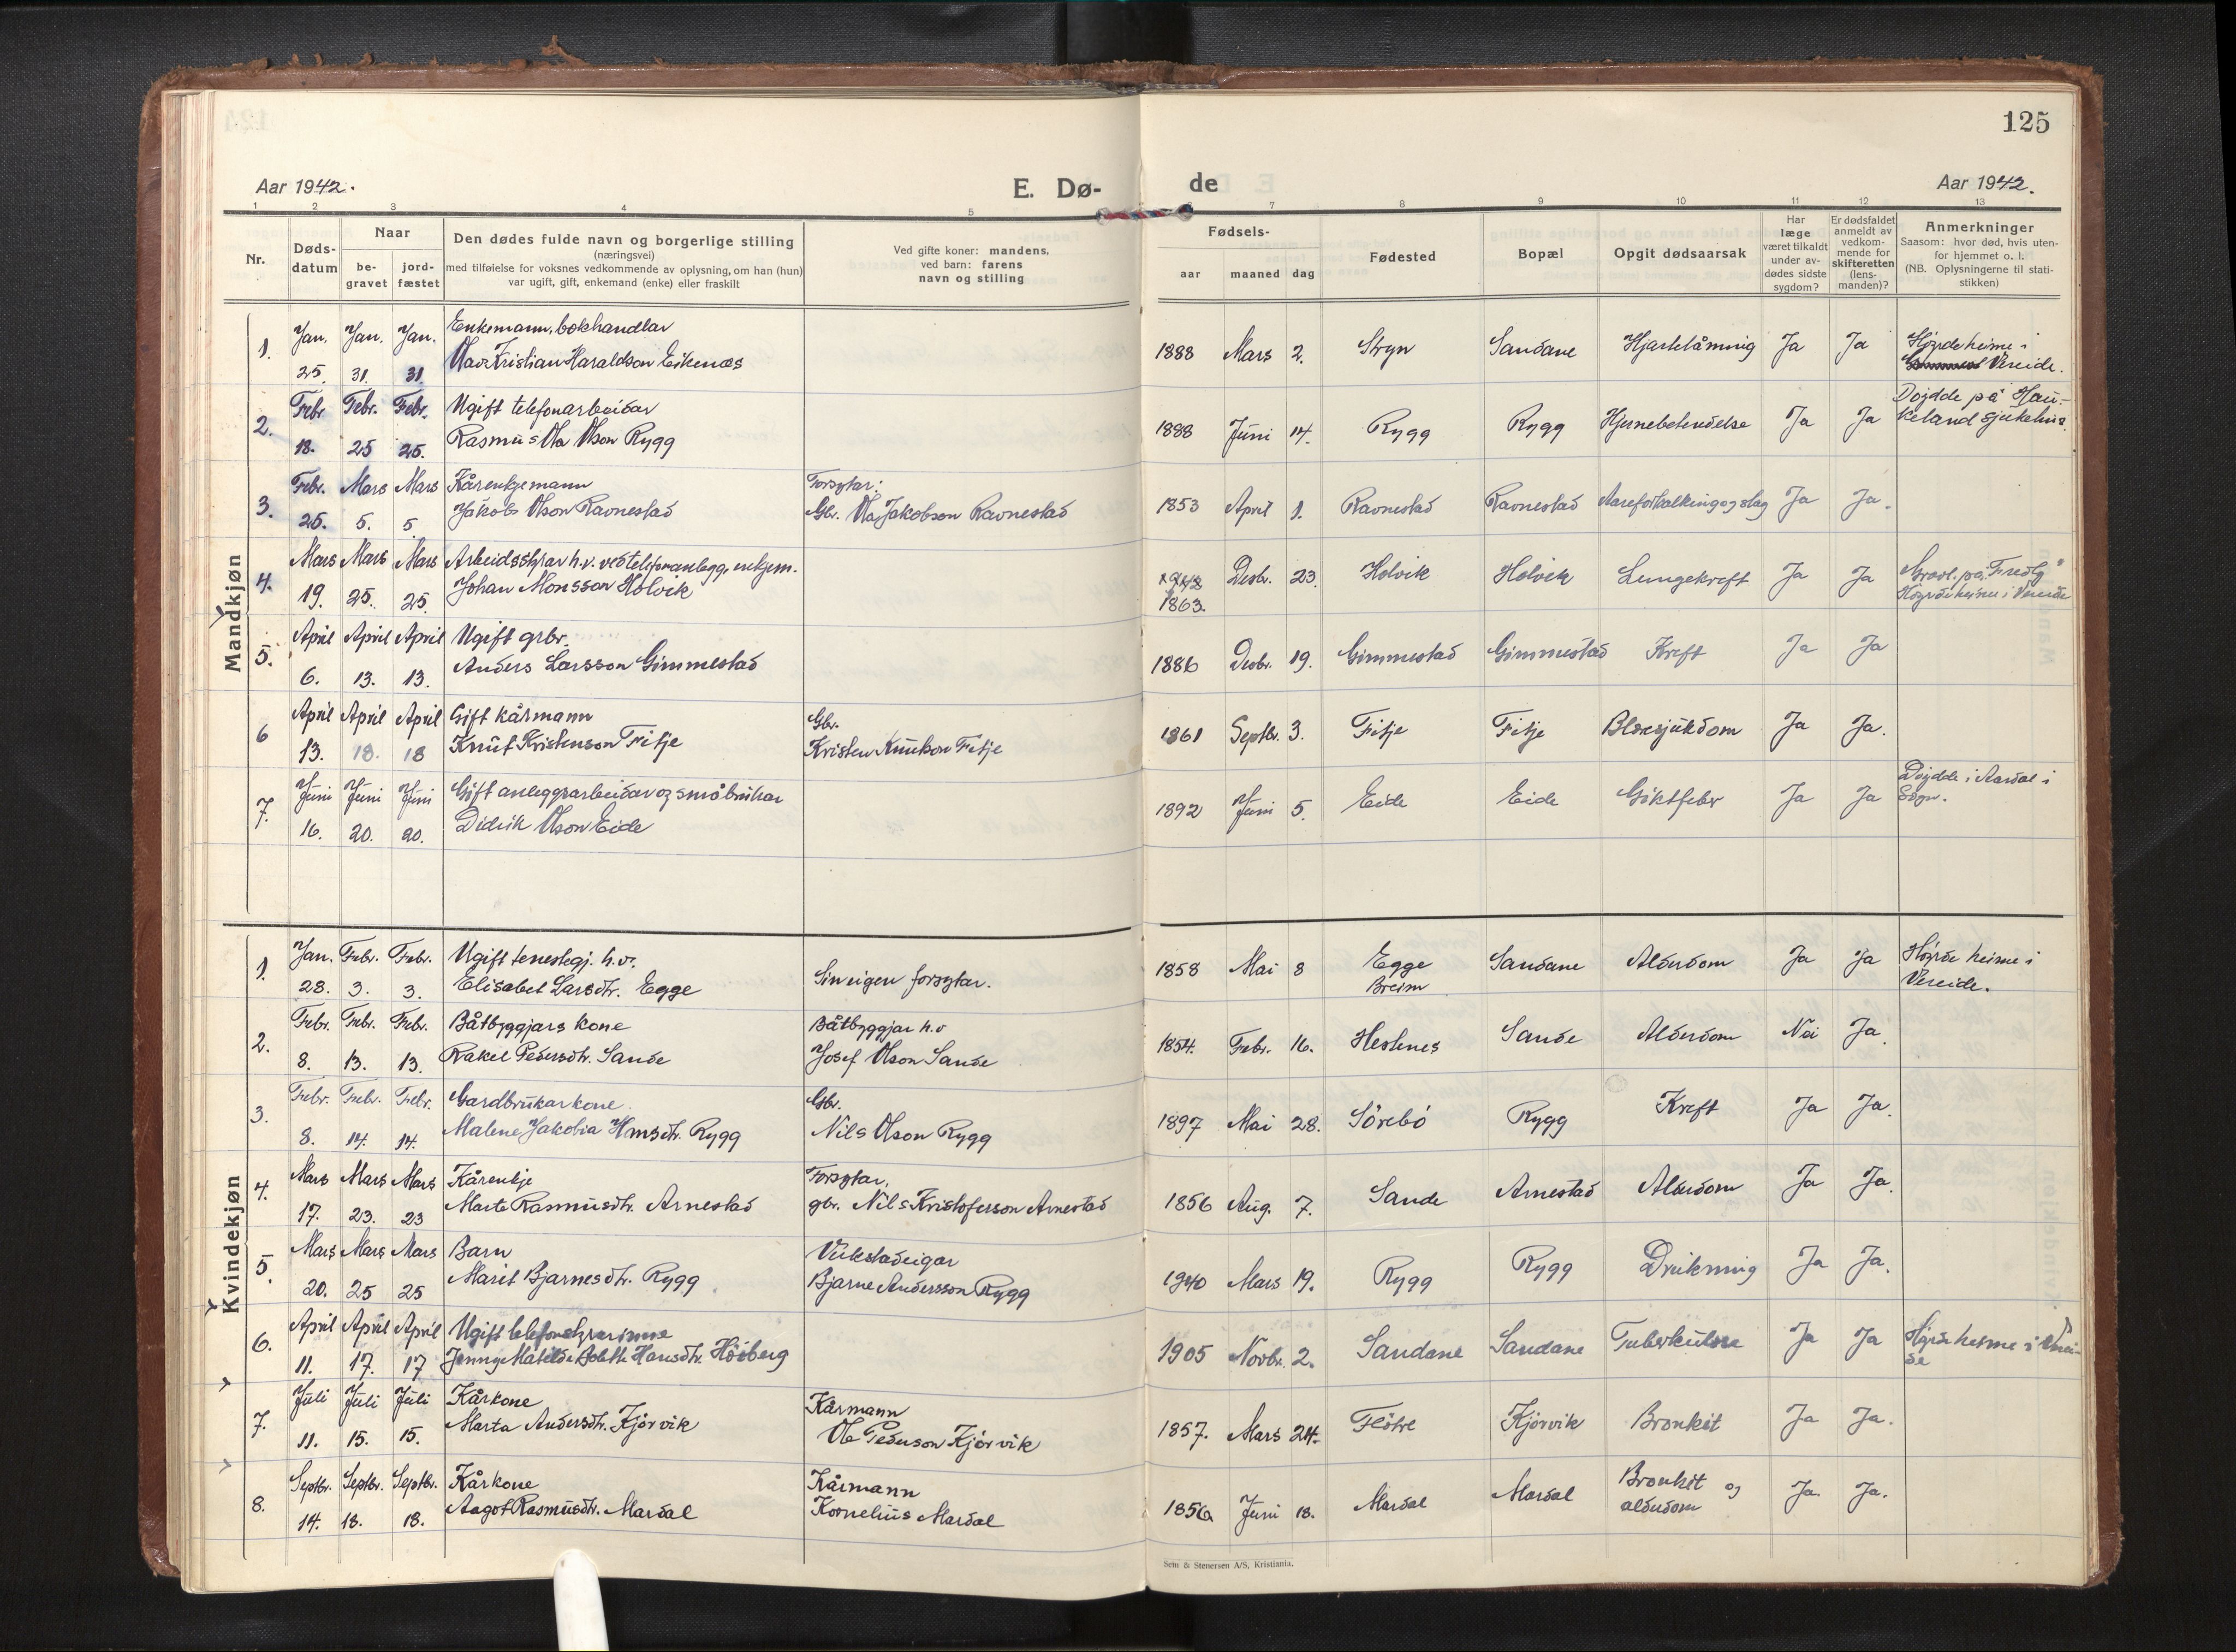 125
Aar 1942.
E. Dø-
de
Aar 1942.
1 2 3 4 5 6 7 8 9 10 11 12 13
Nr.
Døds-
datum
Naar
be-
gravet
jord-
fæstet
Den dødes fulde navn og borgerlige stilling
(næringsvei)
med tilføielse for voksnes vedkommende av oplysning, om han (hun)
var ugift, gift, enkemand (enke) eller fraskilt
Ved gifte koner: mandens,
ved barn: farens
navn og stilling
Fødsels-
aar maaned dag
Fødested
Bopæl
Opgit dødsaarsak
Har
læge
været tilkaldt
under av-
dødes sidste
sygdom?
Er dødsfaldet
anmeldt av
vedkom-
mende for
skifteretten
(lens-
manden)?
Anmerkninger
Saasom: hvor død, hvis uten-
for hjemmet o. l.
(NB. Oplysningerne til stati-
stikken)
Mandkjøn
1. Jan. 25. Jan. 31. Jan. 31. Enkemann, bokhandlar
Olav Kristian Haraldson Eikenæs
1888 Mars 2. Stryn Sandane Hjartelåming Ja Ja Høyrde heime i
Vereide.
2. Febr. 18. Febr. 25 Febr. 25. Ugift telefonarbeidar
Rasmus Ola Olson Rygg
1888 Juni 14. Rygg Rygg Hjernebetendelse Ja Ja Døydde på Hau-
keland sjukehus.
3. Febr. 25. Mars 5. Mars 5. Kårenkjemann
Jakob Olson Ravnestad
Forsytar:
Gbr. Ola Jakobson Ravnestad
1853 April 1. Ravnestad Ravnestad Aareforkalking og slag Ja Ja.
4. Mars 19. Mars 25. Mars 25. Arbeidsstyrar h.v. ved telefonanlegg, enkjem.
Johan Monsson Holvik
1942
1863. Desbr. 23. Holvik Holvik Lungekreft Ja Ja Gravl. på "Fredly"
Høyrde heime i Vereide
5. April 6. April 13. April 13. Ugift grbr.
Anders Larsson Gimmestad
1886 Desbr. 19. Gimmestad Gimmestad Kreft Ja Ja
6 April 13. April 18. April 18 Gift kårmann
Knut Kristenson Fitje
Gbr.
Kristen Knutson Fitje
1861 Septbr. 3. Fitje Fitje Blæresjukdom Ja Ja.
7. Juni 16. Juni 20. Juni 20. Gift anleggsarbeidar og småbrukar
Didrik Olson Eide
1892 Juni 5. Eide Eide Giktfeber Ja Ja Døydde i Aardal i
Sogn.
Kvindekjøn
1. Jan. 28. Febr. 3. Febr. 3. Ugift tenestegj. h.v.
Elisabet Larsdtr. Egge
Sin eigen forsytar.
1858 Mai 8 Egge
Breim Sandane Alderdom Ja Ja Høyrde heime i
Vereide.
2. Febr. 8. Febr. 13. Febr. 13. Båtbyggjars kone
Rakel Pedersdtr. Sande
Båtbyggjar h.v
Josef Olson Sande
1854. Febr. 16. Hestenes Sande Alderdom Nei Ja.
3. Febr. 8. Febr. 14. Febr. 14. Gardbrukarkone.
Malene Jakobia Hansdtr. Rygg
Gbr.
Nils Olson Rygg
1897 Mai 28. Sörebö Rygg Kreft Ja Ja.
4. Mars 17. Mars 23. Mars 23 Kårenkje
Marte Rasmusdtr. Arnestad
Forsytar,
gbr. Nils Kristoferson Arnestad
1856 Aug. 7. Sande Arnestad Alderdom Ja Ja.
5. Mars 20. Mars 25 Mars 25 Barn
Marit Bjarnesdtr. Rygg
Verkstadeigar
Bjarne Andersson Rygg
1940 Mars 19. Rygg Rygg Drukning Ja Ja.
6. April 11. April 17. April 17 Ugift telefonstyrarinne
Jenny Matilde Bolette Hansdtr. Höiberg
1905 Novbr. 2. Sandane Sandane Tuberkulose Ja Ja Høyrde heime i Verei-
de
7. Juli 11. Juli 15. Juli 15. Kårkone
Marta Andersdtr. Kjörvik
Kårmann
Ole Pederson Kjörvik
1857. Mars 24. Flötre Kjörvik Bronkit Ja Ja.
8. Septbr. 14. Septbr. 18. Septbr. 18. Kårkone
Aagot Rasmusdtr. Mardal
Kårmann
Kornelius Mardal
1856 Juni 18. Mardal Mardal Bronkit og
alderdom Ja. Ja.
Sem & Stenersen A/S, Kristiania.